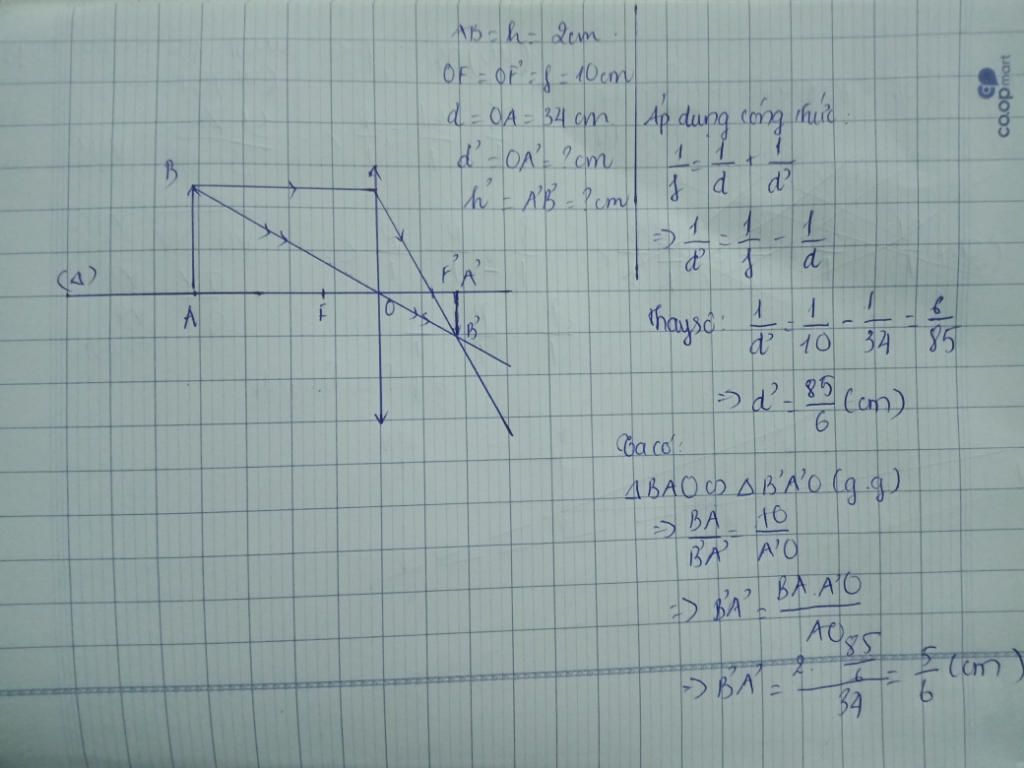 AB = h = 2cm.
OF = OF' = f = 10cm
d = OA = 34 cm
d' = OA' = ? cm
h' = A'B' = ? cm
Áp dụng công thức:
1/f = 1/d + 1/d'
=> 1/d' = 1/f - 1/d
Thay số: 1/d' = 1/10 - 1/34 = 6/85
=> d' = 85/6 (cm)
Ta có:
ΔBAO ∽ ΔB'A'O (g.g)
=> BA/B'A' = AO/A'O
=> B'A' = BA.A'O/AO
=> B'A' = 2. 85/6 / 34 = 5/6 (cm)
B
(Δ)
A
F
O
F' A'
B'
co.opmart